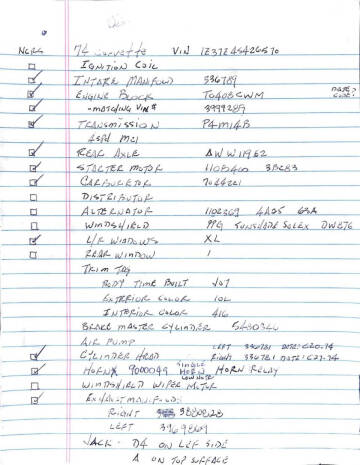 NCRS 74 Corvette VIN 1Z37Z4S426510
Ignition Coil
Intake Manifold 336789
Engine Block T0408CWM DATE? CODE?
-matching VIN# 3999289
Transmission P4M14B
4SPD M21
Rear Axle AWW11962
Starter Motor 1108400 3B283
Carburetor 7044221
Distributor
Alternator 1102369 4A25 63A
Windshield PPG SUNSHADE SOLEX DW876
L/R Windows XL
Rear Window 1
Trim Tag
Body Time Built J07
Exterior Color 10L
Interior Color 416
Brake Master Cylinder 5480346
Air Pump
Cylinder Head LEFT 336781 DATE: C20-74
Right 336781 DATE: C27-74
Horns 9000049 Single Horn Low Note Horn Relay
Windshield Wiper Motor
Exhaust Manifolds
Right 3880828
Left 3989869
Jack - D4 on Lef Side
A on Top Surface